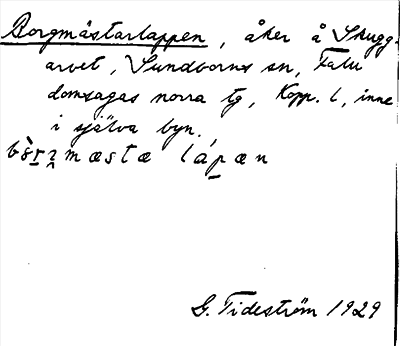 Borgmästarlappen, åker å Skugg-
arvet, Sundborns sn, Falu
domsagas norra tg, Kopp. l, inne
i själva byn.
mæstæ lápæn
G. Tideström 1929